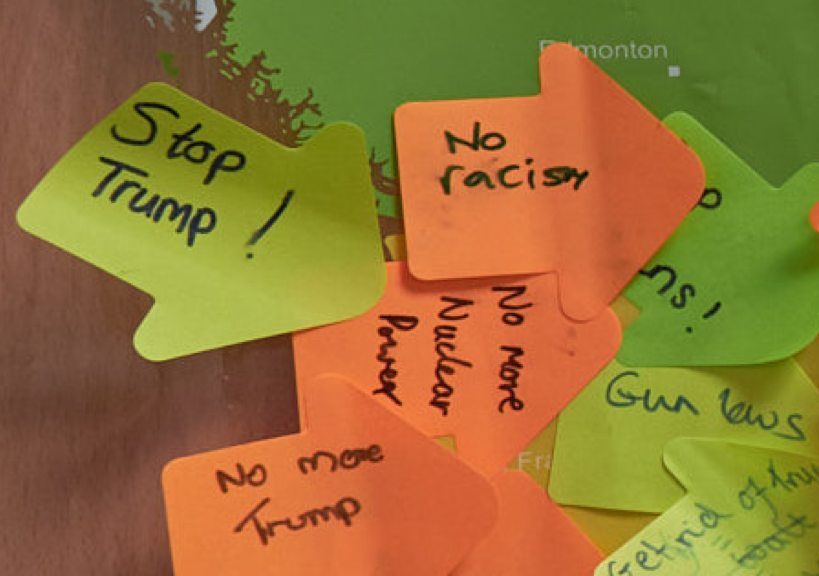 Edmonton
Stop
Trump!
No
racism
ns!
No more
Nuclear
Power
Gun laws
Fra
No more
Trump
Get rid of Tru